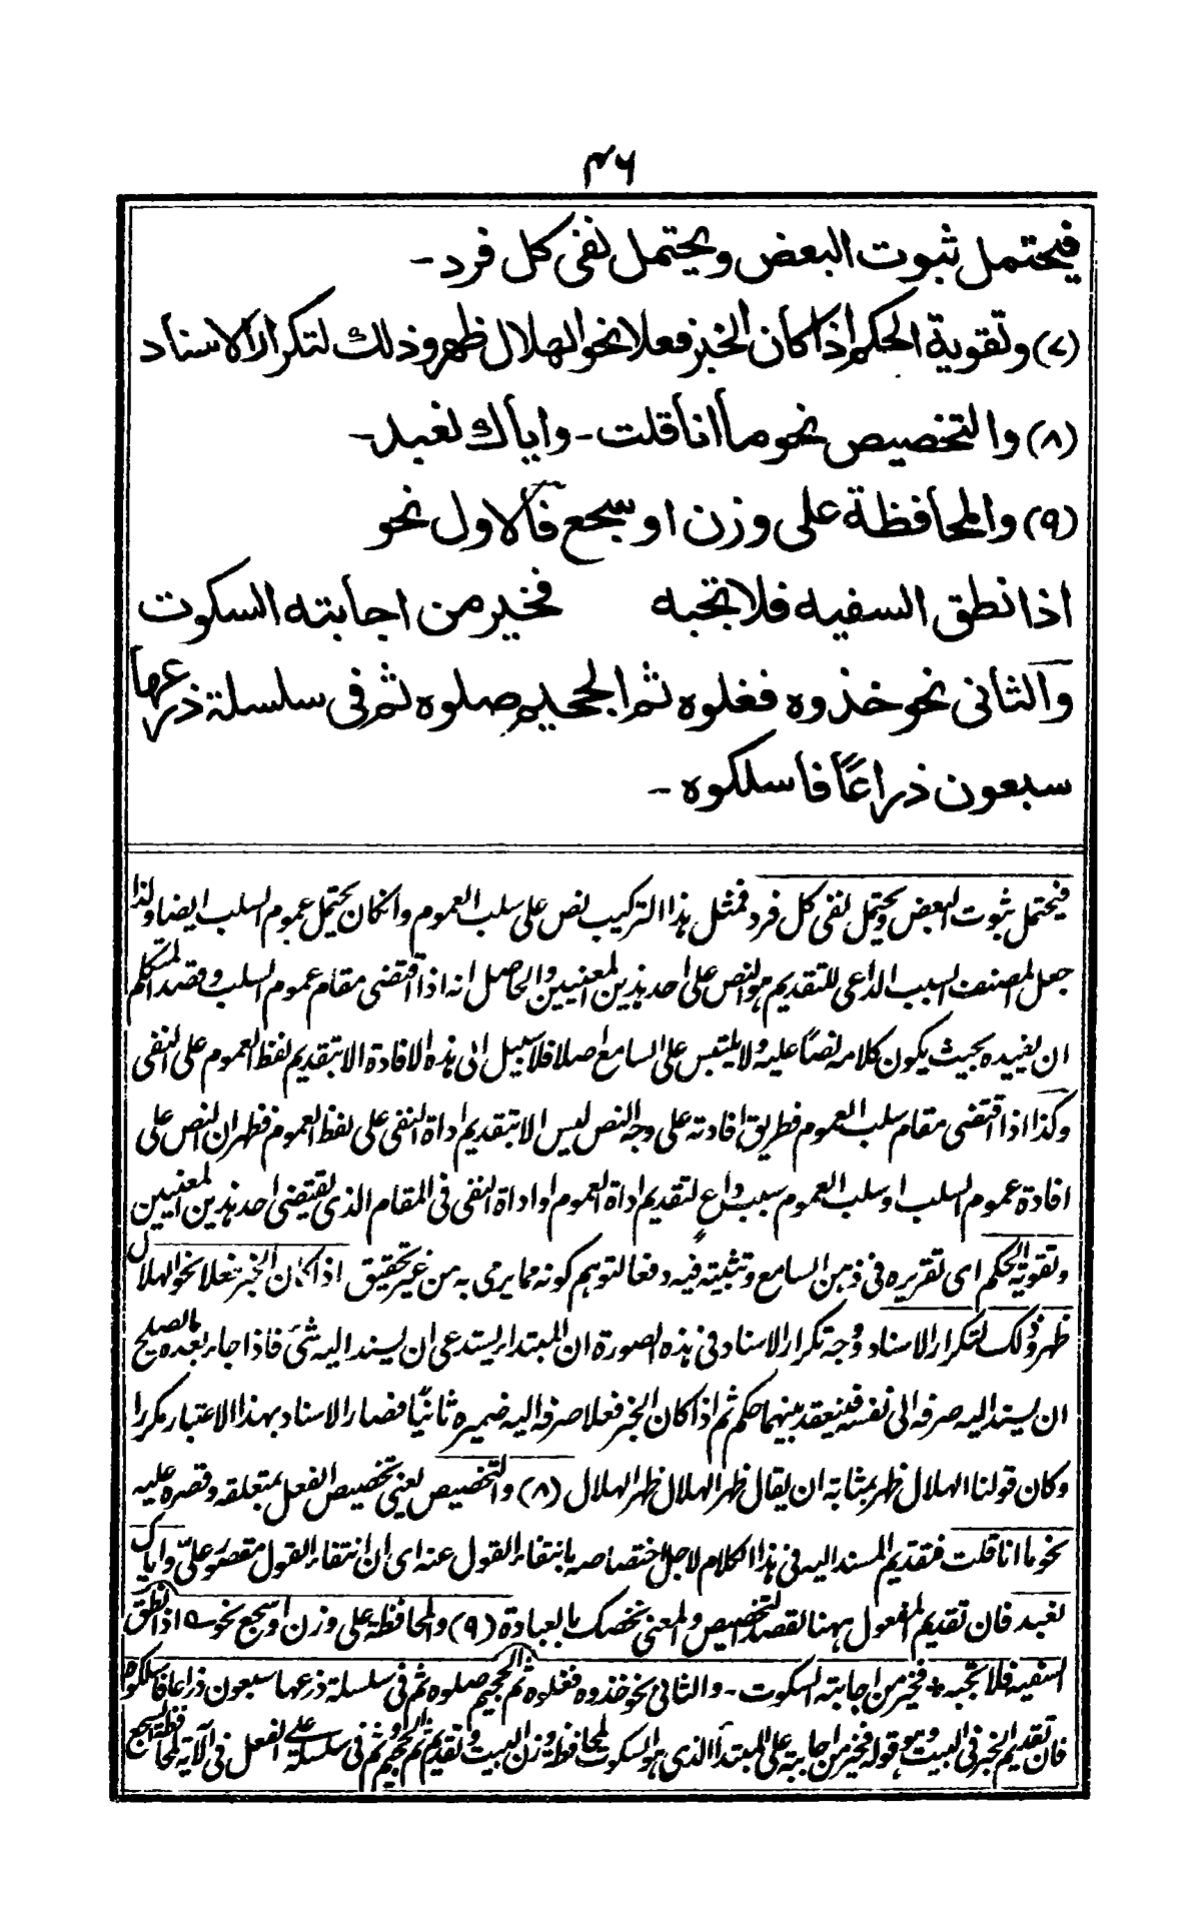 ٤٦
فيحتمل ثبوت البعض ويحتمل نفى كل فرد ـ
(٧) وتقوية الحكم اذا كان الخبر فعلا نحو الهلال ظهر وذلك لتكرار الاسناد
(٨) والتخصيص نحو ما انا قلت ـ واياك نعبد ـ
(٩) والمحافظة على وزن او سجع فالاول نحو
اذا نطق السفيه فلا تجبه فخير من اجابته السكوت
والثانى نحو خذوه فغلوه ثم الجحيم صلوه ثم فى سلسلة ذرعها
سبعون ذراعًا فاسلكوه ـ
فيحتمل ثبوت البعض ويحتمل نفى كل فرد فمثل هذا التركيب نص على سلب العموم وان كان يحتمل عموم السلب ايضا ولذا
جعل المصنف السبب الداعى للتقديم هو النص على احد هذين المعنيين والحاصل انه اذا اقتضى مقام عموم السلب وقصد المتكلم
ان يفيده بحيث يكون كلامه نصًا عليه ولا يلتبس على السامع اصلا فلا سبيل الى هذه الافادة الا بتقديم لفظ العموم على النفى
وكذا اذا اقتضى مقام سلب العموم فطريق افادته على وجه النص ليس الا بتقديم اداة النفى على لفظ العموم فظهر ان النص على
افادة عموم السلب او سلب العموم سبب داعٍ لتقديم اداة العموم او اداة النفى فى المقام الذى يقتضى احد هذين المعنيين
وتقوية الحكم اى تقريره فى ذهن السامع وتثبيته فيه دفعا لتوهم كونه مما يرمى به من غير تحقيق اذا كان الخبر فعلا نحو الهلال
ظهر وذلك لتكرار الاسناد ووجه تكرار الاسناد فى هذه الصورة ان المبتدأ يستدعى ان يسند اليه شئ فاذا جاء بعده ما يصلح
ان يسند اليه صرفه الى نفسه فينعقد بينهما حكم ثم اذا كان الخبر فعلا صرفه اليه ضميره ثانيًا فصار الاسناد بهذا الاعتبار مكررا
وكان قولنا الهلال ظهر بمثابة ان يقال ظهر الهلال ظهر الهلال (٨) والتخصيص يعنى تخصيص الفعل بمتعلقه وقصره عليه
نحو ما انا قلت فتقديم المسند اليه فى هذا الكلام لاجل اختصاصه بانتفاء القول عنه اى ان انتفاء القول مقصور علىّ واياك
نعبد فان تقديم المفعول ههنا لقصد التخصيص والمعنى نخصك بالعبادة (٩) والمحافظة على وزن او سجع نحو ؎ اذا نطق
السفيه فلا تجبه * فخير من اجابته السكوت ـ والثانى نحو خذوه فغلوه ثم الجحيم صلوه ثم فى سلسلة ذرعها سبعون ذراعا فاسلكوه
فان تقديم الخبر فى البيت وهو قوله فخير من اجابته على المبتدأ الذى هو السكوت لمحافظة وزن البيت وتقديم ثم الجحيم وثم فى سلسلة على الفعل فى الآية لمحافظة السجع